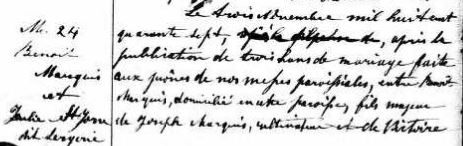 M. 24
Benoit
Marquis
et
Julie St Jorre
dit Sergerie
Le trois Novembre mil huit cent
quarante sept, après la
publication de trois bans de mariage faite
aux prônes de nos messes paroissiales, entre Benoit
Marquis, domicilié en cette paroisse, fils majeur
de Joseph Marquis, cultivateur et de Victoire